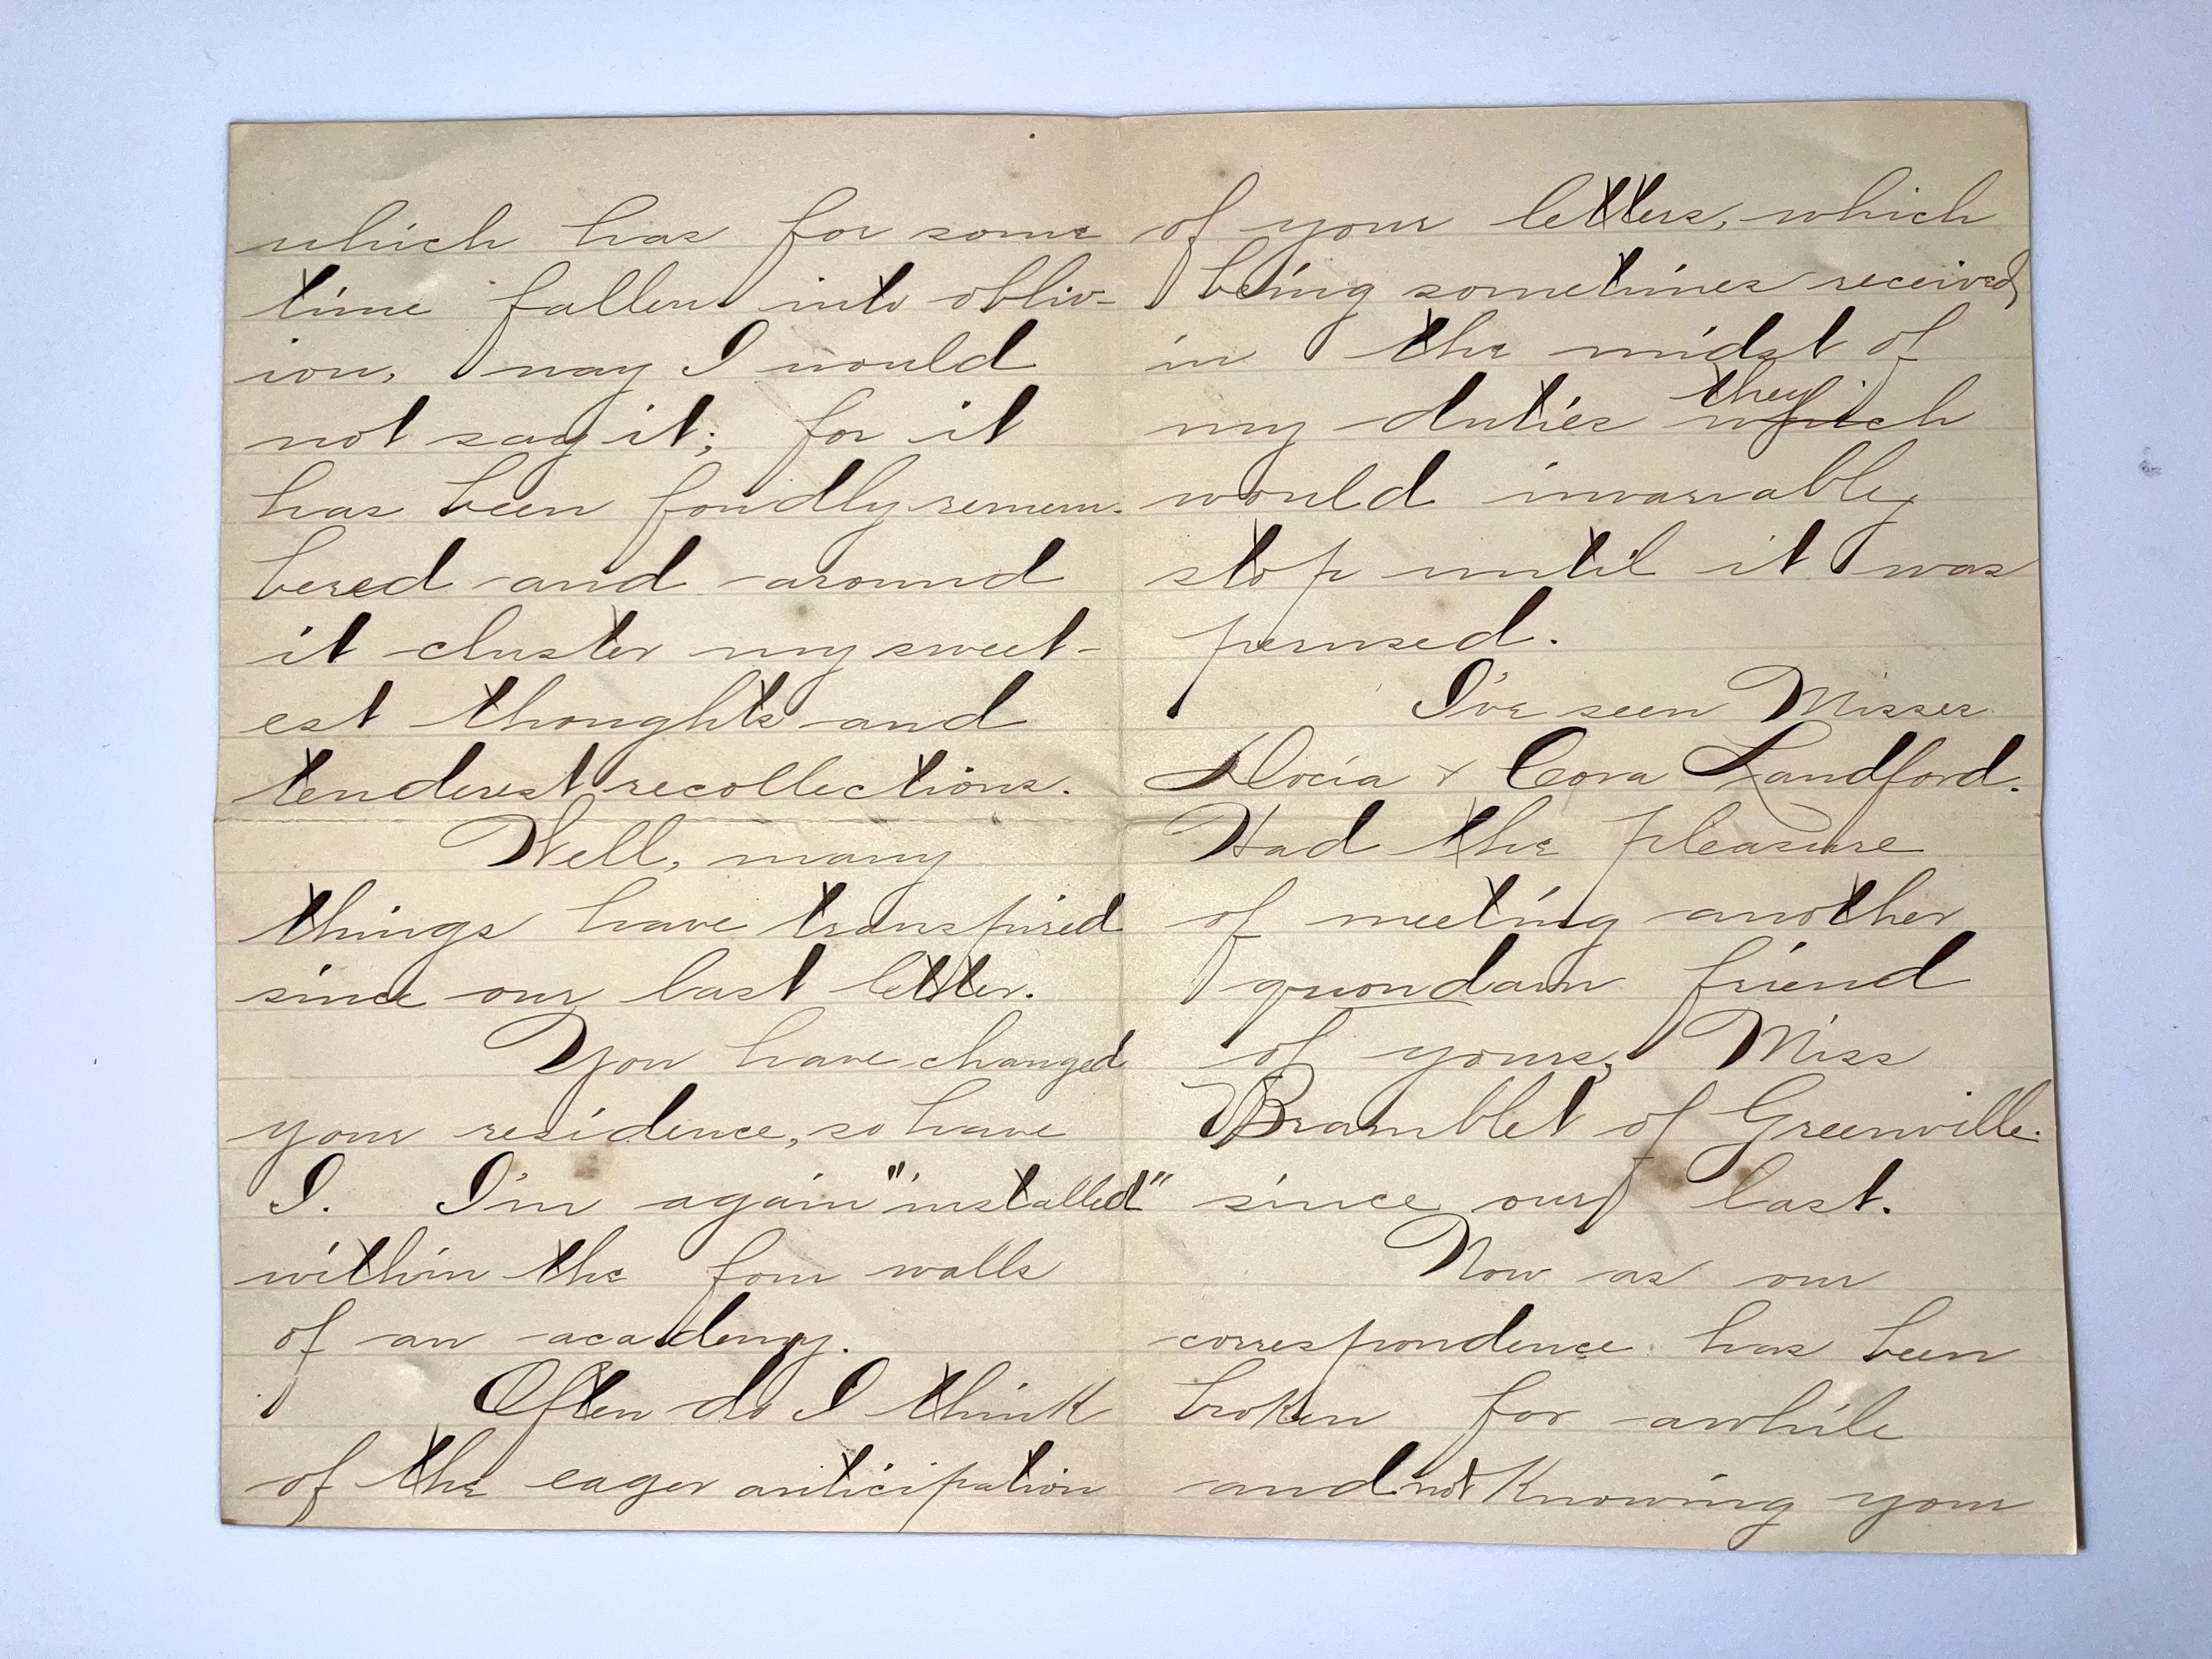 which has for some
time fallen into obliv-
ion, nay I would
not say it; for it
has been fondly remem-
bered and around
it cluster my sweet-
est thoughts and
tenderest recollections.
Well, many
things have transpired
since our last letter.
You have changed
your residence, so have
I. I'm again "installed"
within the four walls
of an academy.
Often do I think
of the eager anticipation
of your letters, which
being sometimes received
in the midst of
my duties they which
would invariably
stop until it was
perused.
I've seen Misses
Docia & Cora Landford.
Had the pleasure
of meeting another
quondam friend
of yours, Miss
Bramblet of Greenville.
since our last.
Now as our
correspondence has been
broken for awhile
and not knowing your